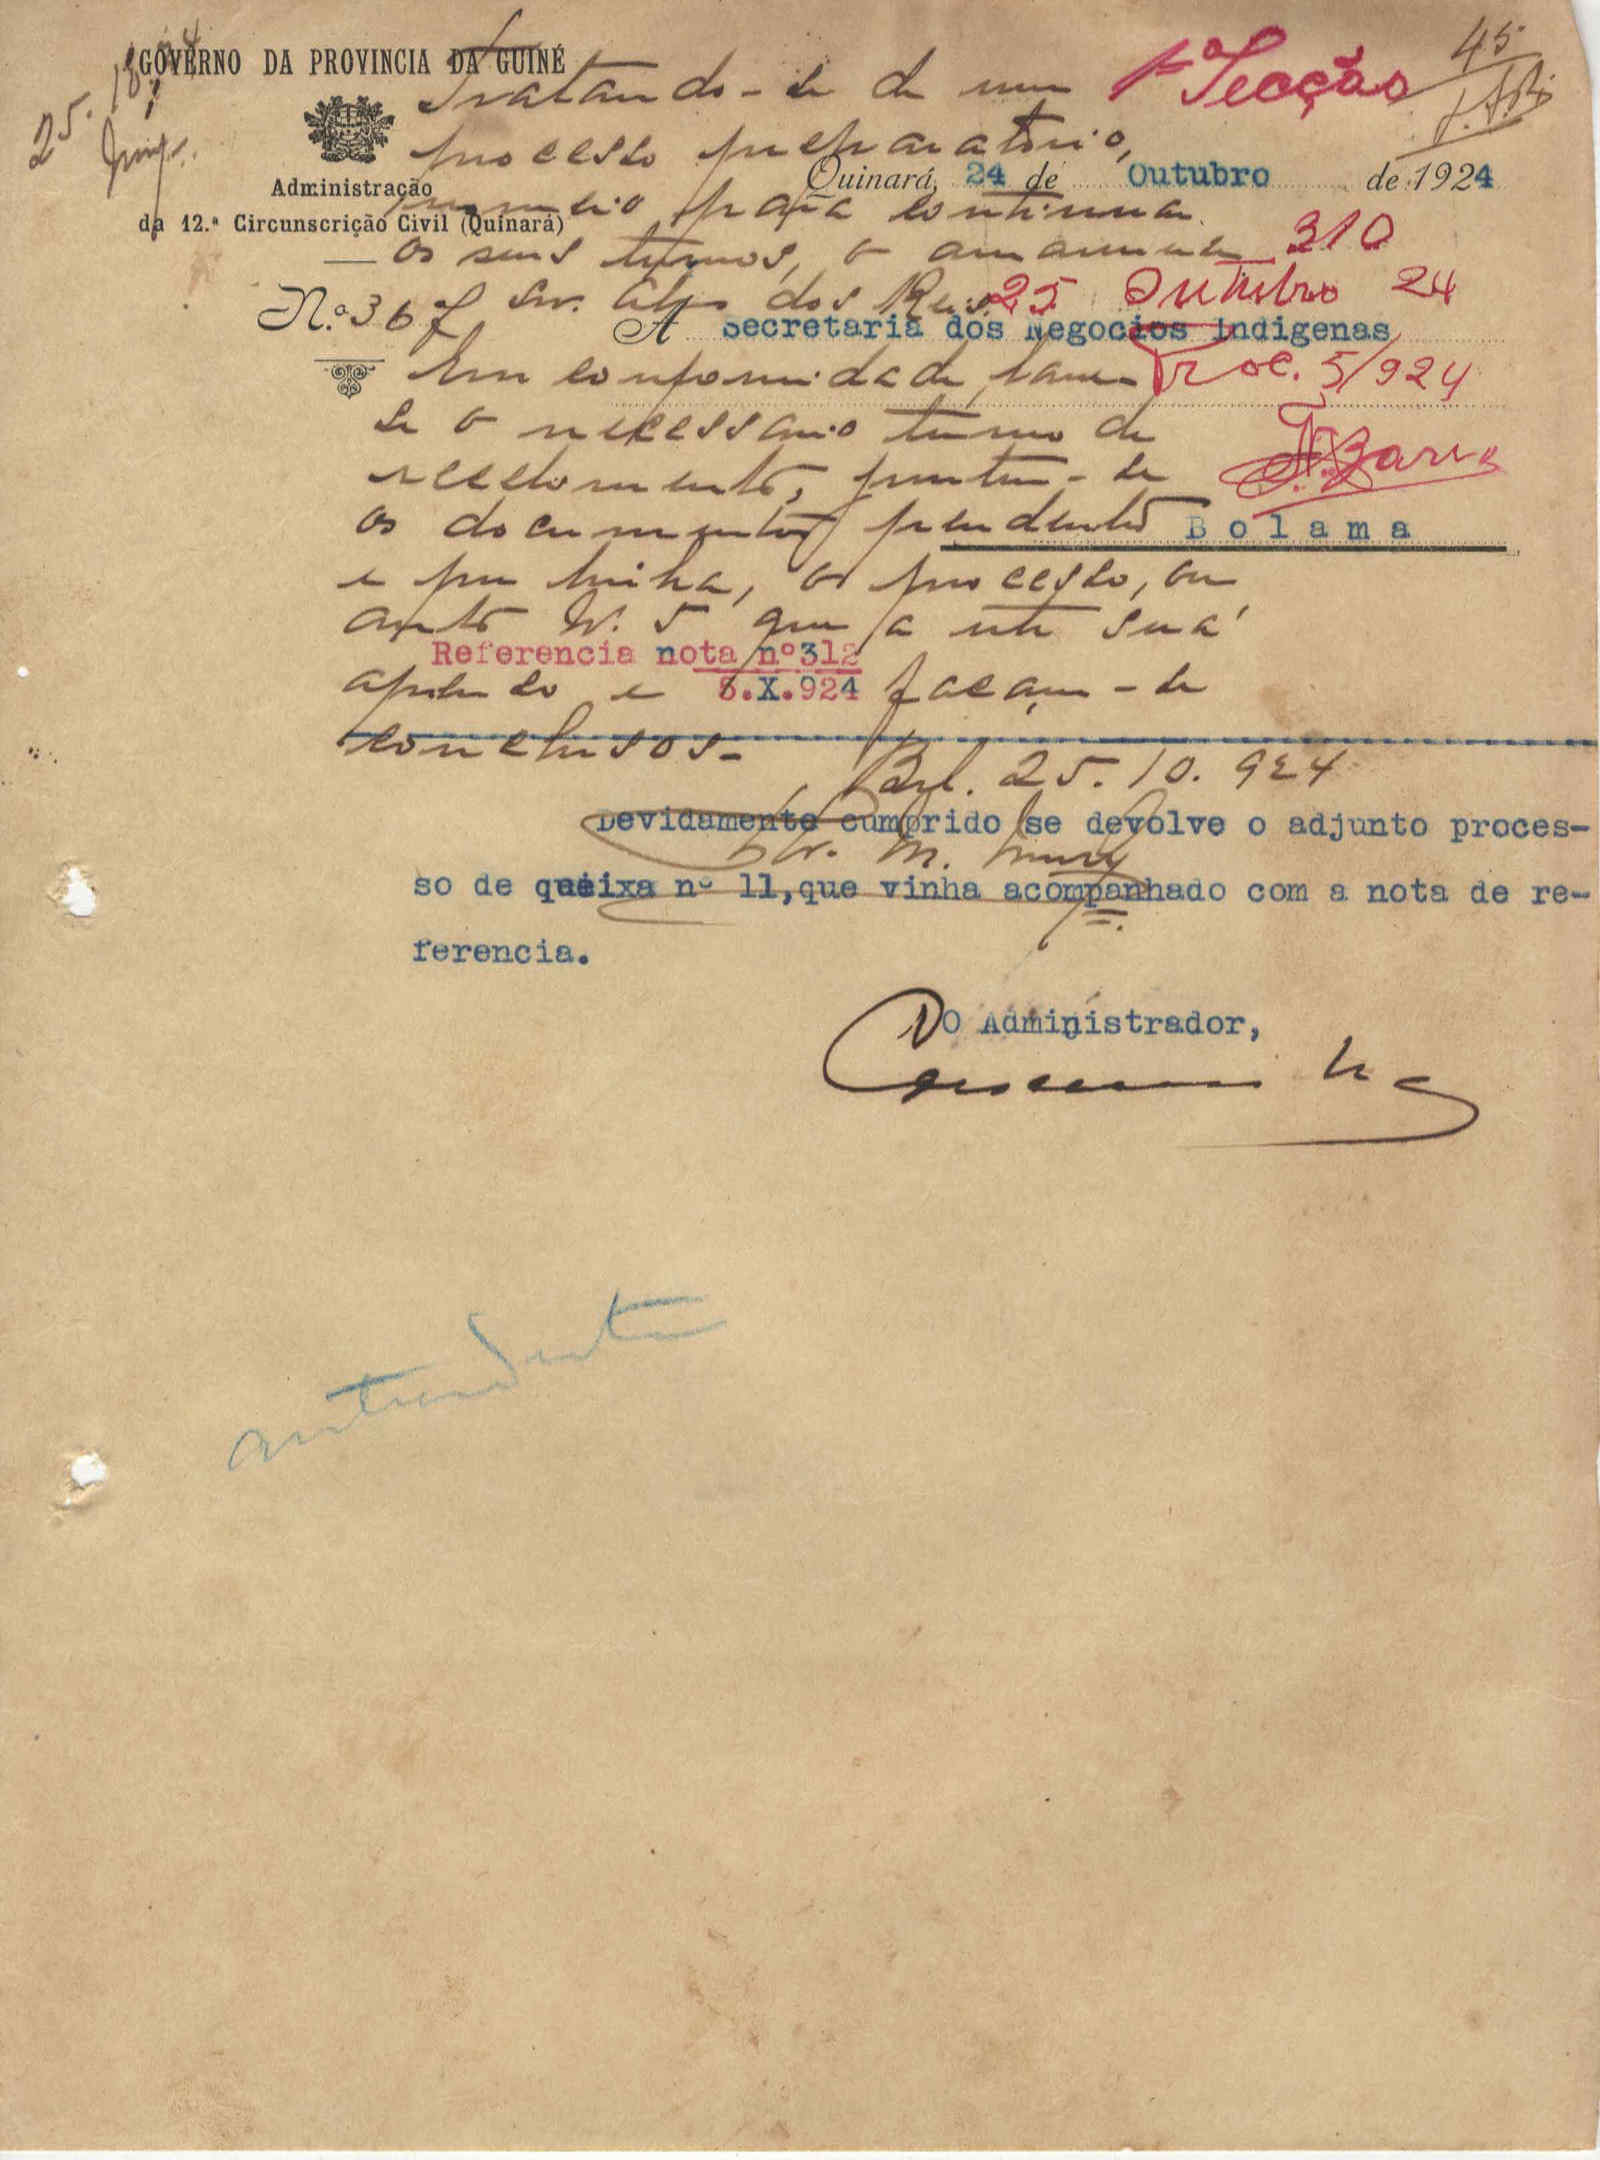 GOVERNO DA PROVINCIA DA GUINÉ
Administração
da 12.ª Circunscrição Civil (Quinará)
N.º 367
45
1ª Secção
Quinará, 24 de Outubro de 1924
310
25 Outubro 24
A Secretaria dos Negocios Indigenas
Proc. 5/924
Bolama
Tratando-se de um
processo preparatorio,
nomeio para continuar
os seus termos, o amanuense
snr. Alfº dos Reis.
Em conformidade, lavre-
se o necessario termo de
recebimento, juntem-se
os documentos pendentes
e por linha, o processo, ou
auto N. 5 que a este está
apenso e façam-se
conclusos-
Bol. 25.10.924
Referencia nota nº 312
8.X.924
Devidamente cumprido se devolve o adjunto proces-
so de queixa nº 11,que vinha acompanhado com a nota de re-
ferencia.
O Administrador,